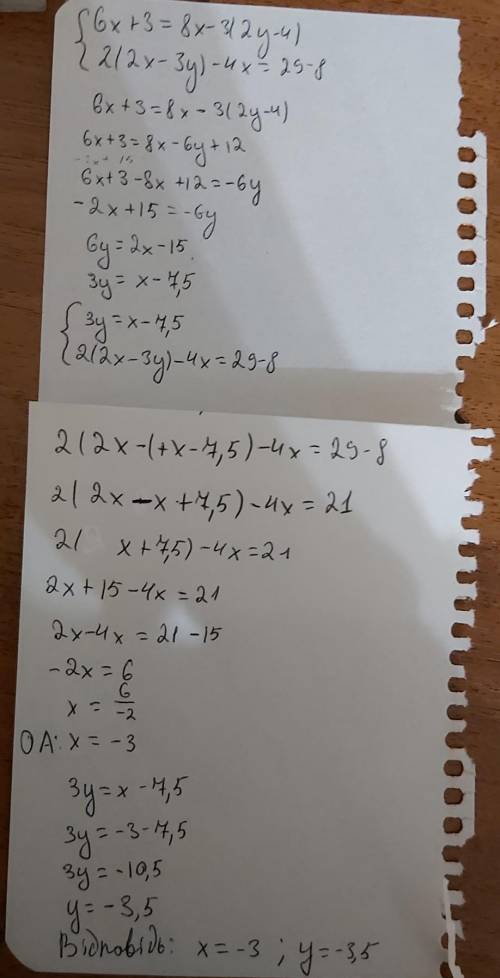 {6x+3=8x-3(2y-4)
{2(2x-3y)-4x=29-8
6x+3=8x-3(2y-4)
6x+3=8x-6y+12
6x+3-8x+12=-6y
-2x+15=-6y
6y=2x-15
3y=x-7,5
{3y=x-7,5
{2(2x-3y)-4x=29-8
2(2x-(+x-7,5)-4x=29-8
2(2x-x+7,5)-4x=21
2( x+7,5)-4x=21
2x+15-4x=21
2x-4x=21-15
-2x=6
x=6/-2
ОА: x=-3
3y=x-7,5
3y=-3-7,5
3y=-10,5
y=-3,5
Відповідь: x=-3; y=-3,5